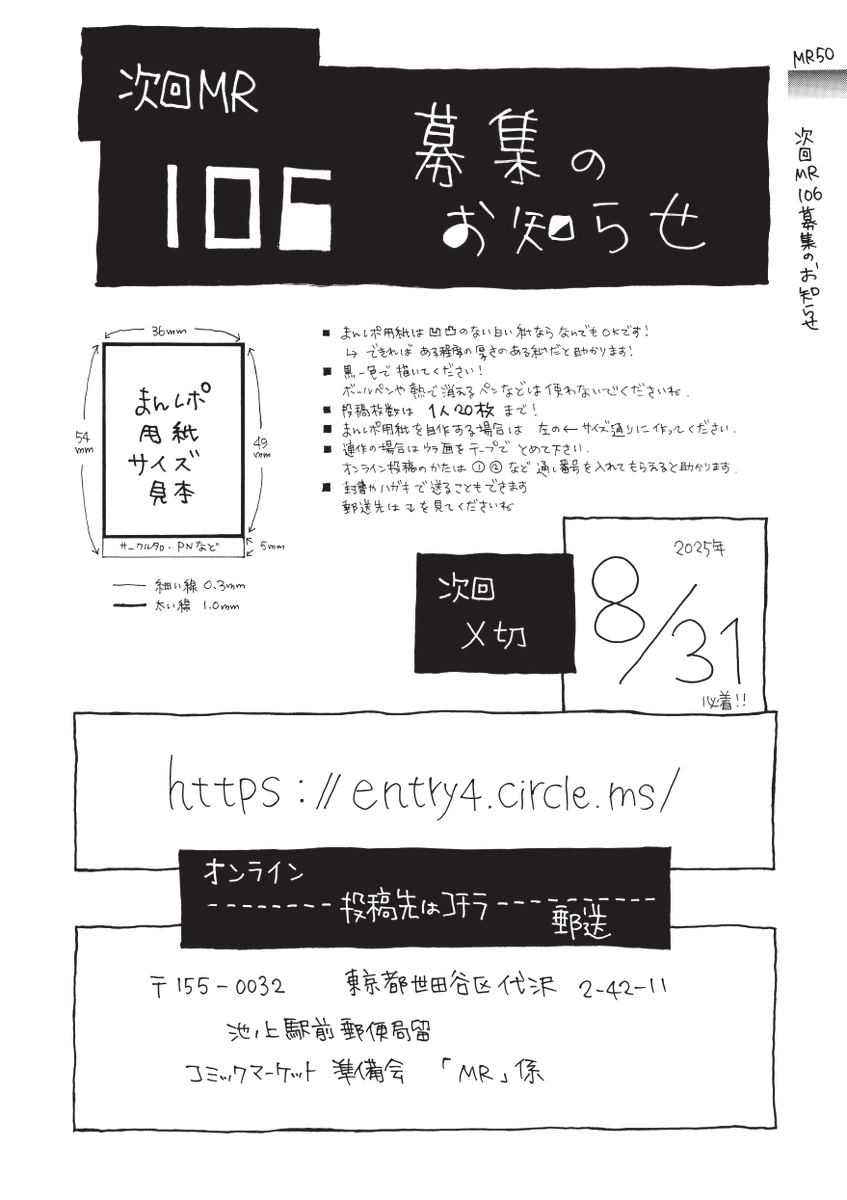 MR50
次回MR106募集のお知らせ
次回MR
106
募集の
お知らせ
36mm
54mm
49mm
まんレポ
用紙
サイズ
見本
サークル名・PNなど
5mm
細い線 0.3mm
太い線 1.0mm
■ まんレポ用紙は凹凸のない白い紙ならなんでもOKです!
↳ できればある程度の厚さのある紙だと助かります!
■ 黒一色で描いてください!
ボールペンや熱で消えるペンなどは使わないでくださいね.
■ 投稿枚数は 1人20枚 まで!
■ まんレポ用紙を自作する場合は 左の←サイズ通りに作ってください.
■ 連作の場合はウラ面をテープでとめて下さい.
オンライン投稿のかたは①②など通し番号を入れてもらえると助かります.
■ 封書かハガキで送ることもできます
郵送先は↓を見てくださいね
次回
〆切
2025年
8/31
必着!!
https://entry4.circle.ms/
オンライン
投稿先はコチラ
郵送
〒155-0032 東京都世田谷区代沢 2-42-11
池ノ上駅前郵便局留
コミックマーケット準備会 「MR」係